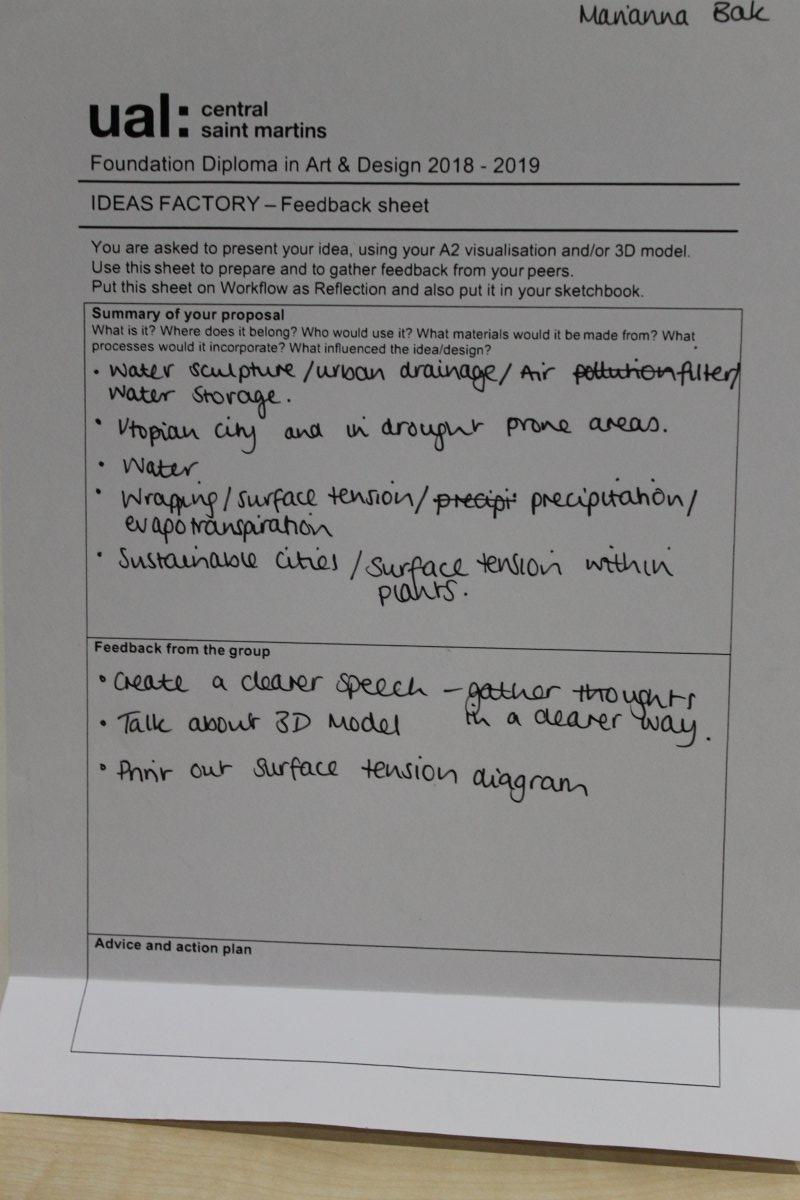 Marianna Bak
ual: central
saint martins
Foundation Diploma in Art & Design 2018 - 2019
IDEAS FACTORY – Feedback sheet
You are asked to present your idea, using your A2 visualisation and/or 3D model.
Use this sheet to prepare and to gather feedback from your peers.
Put this sheet on Workflow as Reflection and also put it in your sketchbook.
Summary of your proposal
What is it? Where does it belong? Who would use it? What materials would it be made from? What
processes would it incorporate? What influenced the idea/design?
• Water sculpture / urban drainage / Air pollution filter /
Water storage.
• Utopian city and in drought prone areas.
• Water
• Wrapping / surface tension / precipi precipitation /
evapotranspiration
• Sustainable cities / surface tension within
plants.
Feedback from the group
• Create a clearer speech – gather thoughts
in a clearer way.
• Talk about 3D Model
• Print out surface tension diagram
Advice and action plan